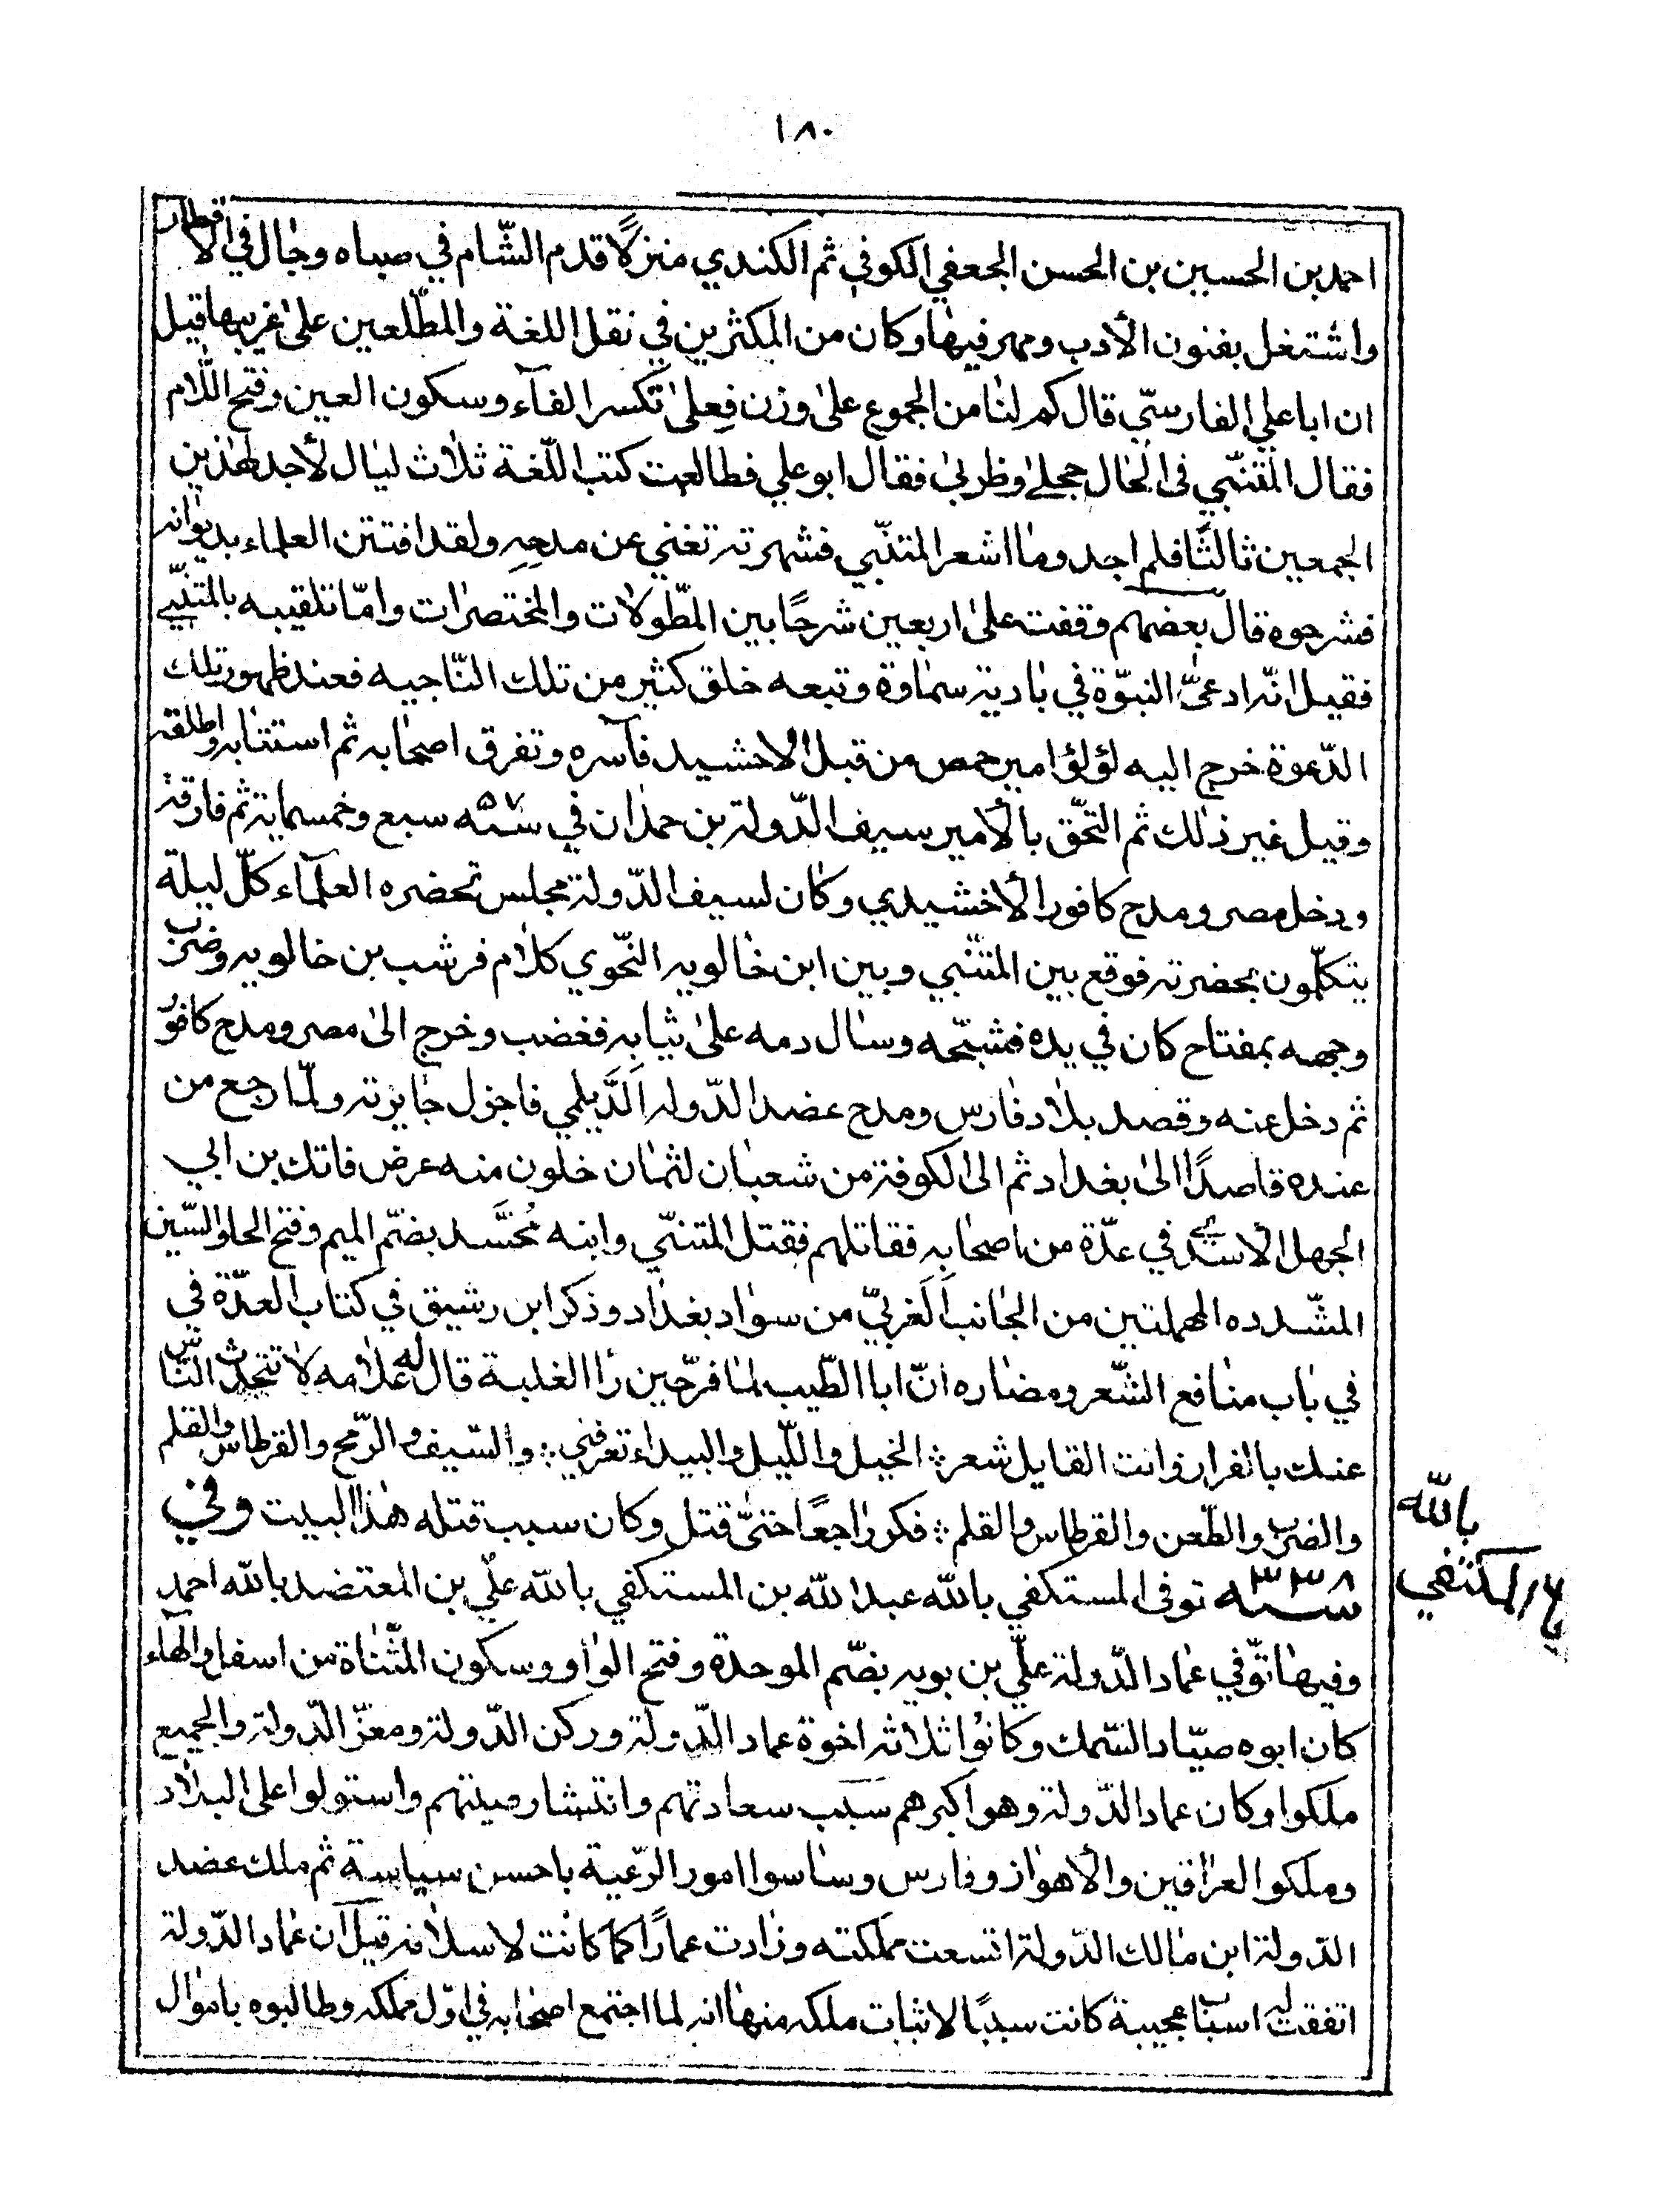 ١٨٠
احمد بن الحسين بن الحسن الجعفي الكوفي ثم الكندي منزلًا قدم الشّام في صباه وجال في الأقطار
واشتغل بفنون الأدب ومهر فيها وكان من المكثرين في نقل اللغة والمطّلعين على غريبها قيل
ان ابا علي الفارسيّ قال كم لنا من الجموع على وزن فِعلى تكسر الفآء وسكون العين وفتح اللام
فقال المتنبّي فى الحال حجلى وظربى فقال ابو علي فطالعت كتب اللّغة ثلاث ليال لأجد لهذين
الجمعين ثالثًا فلم اجد وما اشعر المتنبّي فشهرته تغني عن مدحِهِ ولقد افتتن العلماء بديوانه
فشرحوه قال بعضهم وقفت على اربعين شرحًا بين المطّولات والمختصرات وامّا تلقيبه بالمتنبّي
فقيل انّه ادعىّ النبوّة في بادية سماوة وتبعه خلق كثير من تلك النّاحيه فعند ظهور تلك
الدّعوة خرج اليه لؤلؤ امير حمص من قبل الاخشيد فآسره وتفرق اصحابه ثم استتابه واطلقه
وقيل غير ذلك ثم التحّق بالأمير سيف الدّولة بن حمدان في سنه ٥٧ سبع وخمسماية ثم فارقه
ودخل مصر ومدح كافور الأخشيدي وكان لسيف الدّولة مجلس تحضره العلمآء كلّ ليلة
يتكلّمون بحضرته فوقع بين المتنّبي وبين ابن خالويه النّحوي كلام فرشب بن خالويه وضرب
وجهه بمفتاح كان في يده فشجّه وسال دمه على ثيابه فغضب وخرج الى مصر ومدح كافور
ثم دخل عنه وقصد بلاد فارس ومدح عضد الدّوله الَدَّيلمي فاجزل جايزته ولمّا رجع من
عنده قاصدًا الى بغداد ثم الى الكوفة من شعبان لثمان خلون منه عرض فاتك بن ابي
الجهل الاسدي في عدّة من اصحابه فقاتلهم فقتل المتنبّي وابنه مُحَسَّد بضمّ الميم وفتح الحا والسّين
المشّدده المهملتين من الجانب اَلَغربيّ من سواد بغداد وذكر ابن رشيق في كتاب العدّة في
في باب منافع الشّعر ومضاره انّ ابا الطّيب لما فرّحين رأ الغلبة قال له غلامه لا تتحدث النّاس
عنك بالفرار وانت القايل شعر الخيل والليل والبيداء تعرفني والسّيف والرّمح والقرطاس والقلم
والضرب والطّعن والقرطاس والقلم فكر راجعا حتىّ قتل وكان سبب قتله هذا البيت وفي
سنه ٣٣٨ توفى المستكفي بالله عبد الله بن المستكفي بالله عليّ بن المعتضد بالله احمد
بالله
المكتفي
وفيها توّفي عماد الدّولة عليّ بن بويه بضّم الموحدة وفتح الواو وسكون المثّناة من اسفل والهآء
كان ابوه صيّاد السّمك وكانوا ثلاثه اخوة عماد الدّولة وركن الدّولة ومعزّ الدّولة والجميع
ملكوا وكان عماد الدّولة وهو اكبرهم سبب سعادتهم وانتشار صيتهم واستولوا على البلاد
وملكوا العراقين والأهواز وفارس وساسوا امور الرّعية باحسن سياسة ثم ملك عضد
الدّولة ابن مالك الدّولة اتسعت مملكته وزادت عمارًا كما كانت لاسلافه قيل آن عماد الدّولة
اتفقت له اسباب عجيبة كانت سببًا لاثبات ملكه منها انه لما اجتمع اصحابه في اوّل مملكه وطالبوه باموال